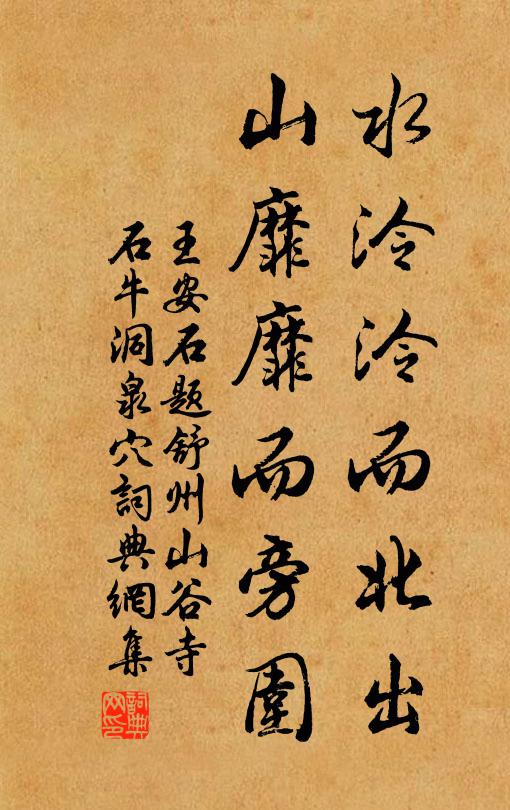 水泠泠而北出
山靡靡而旁圍
王安石題舒州山谷寺
石牛洞泉穴詞典網集
詞典网印